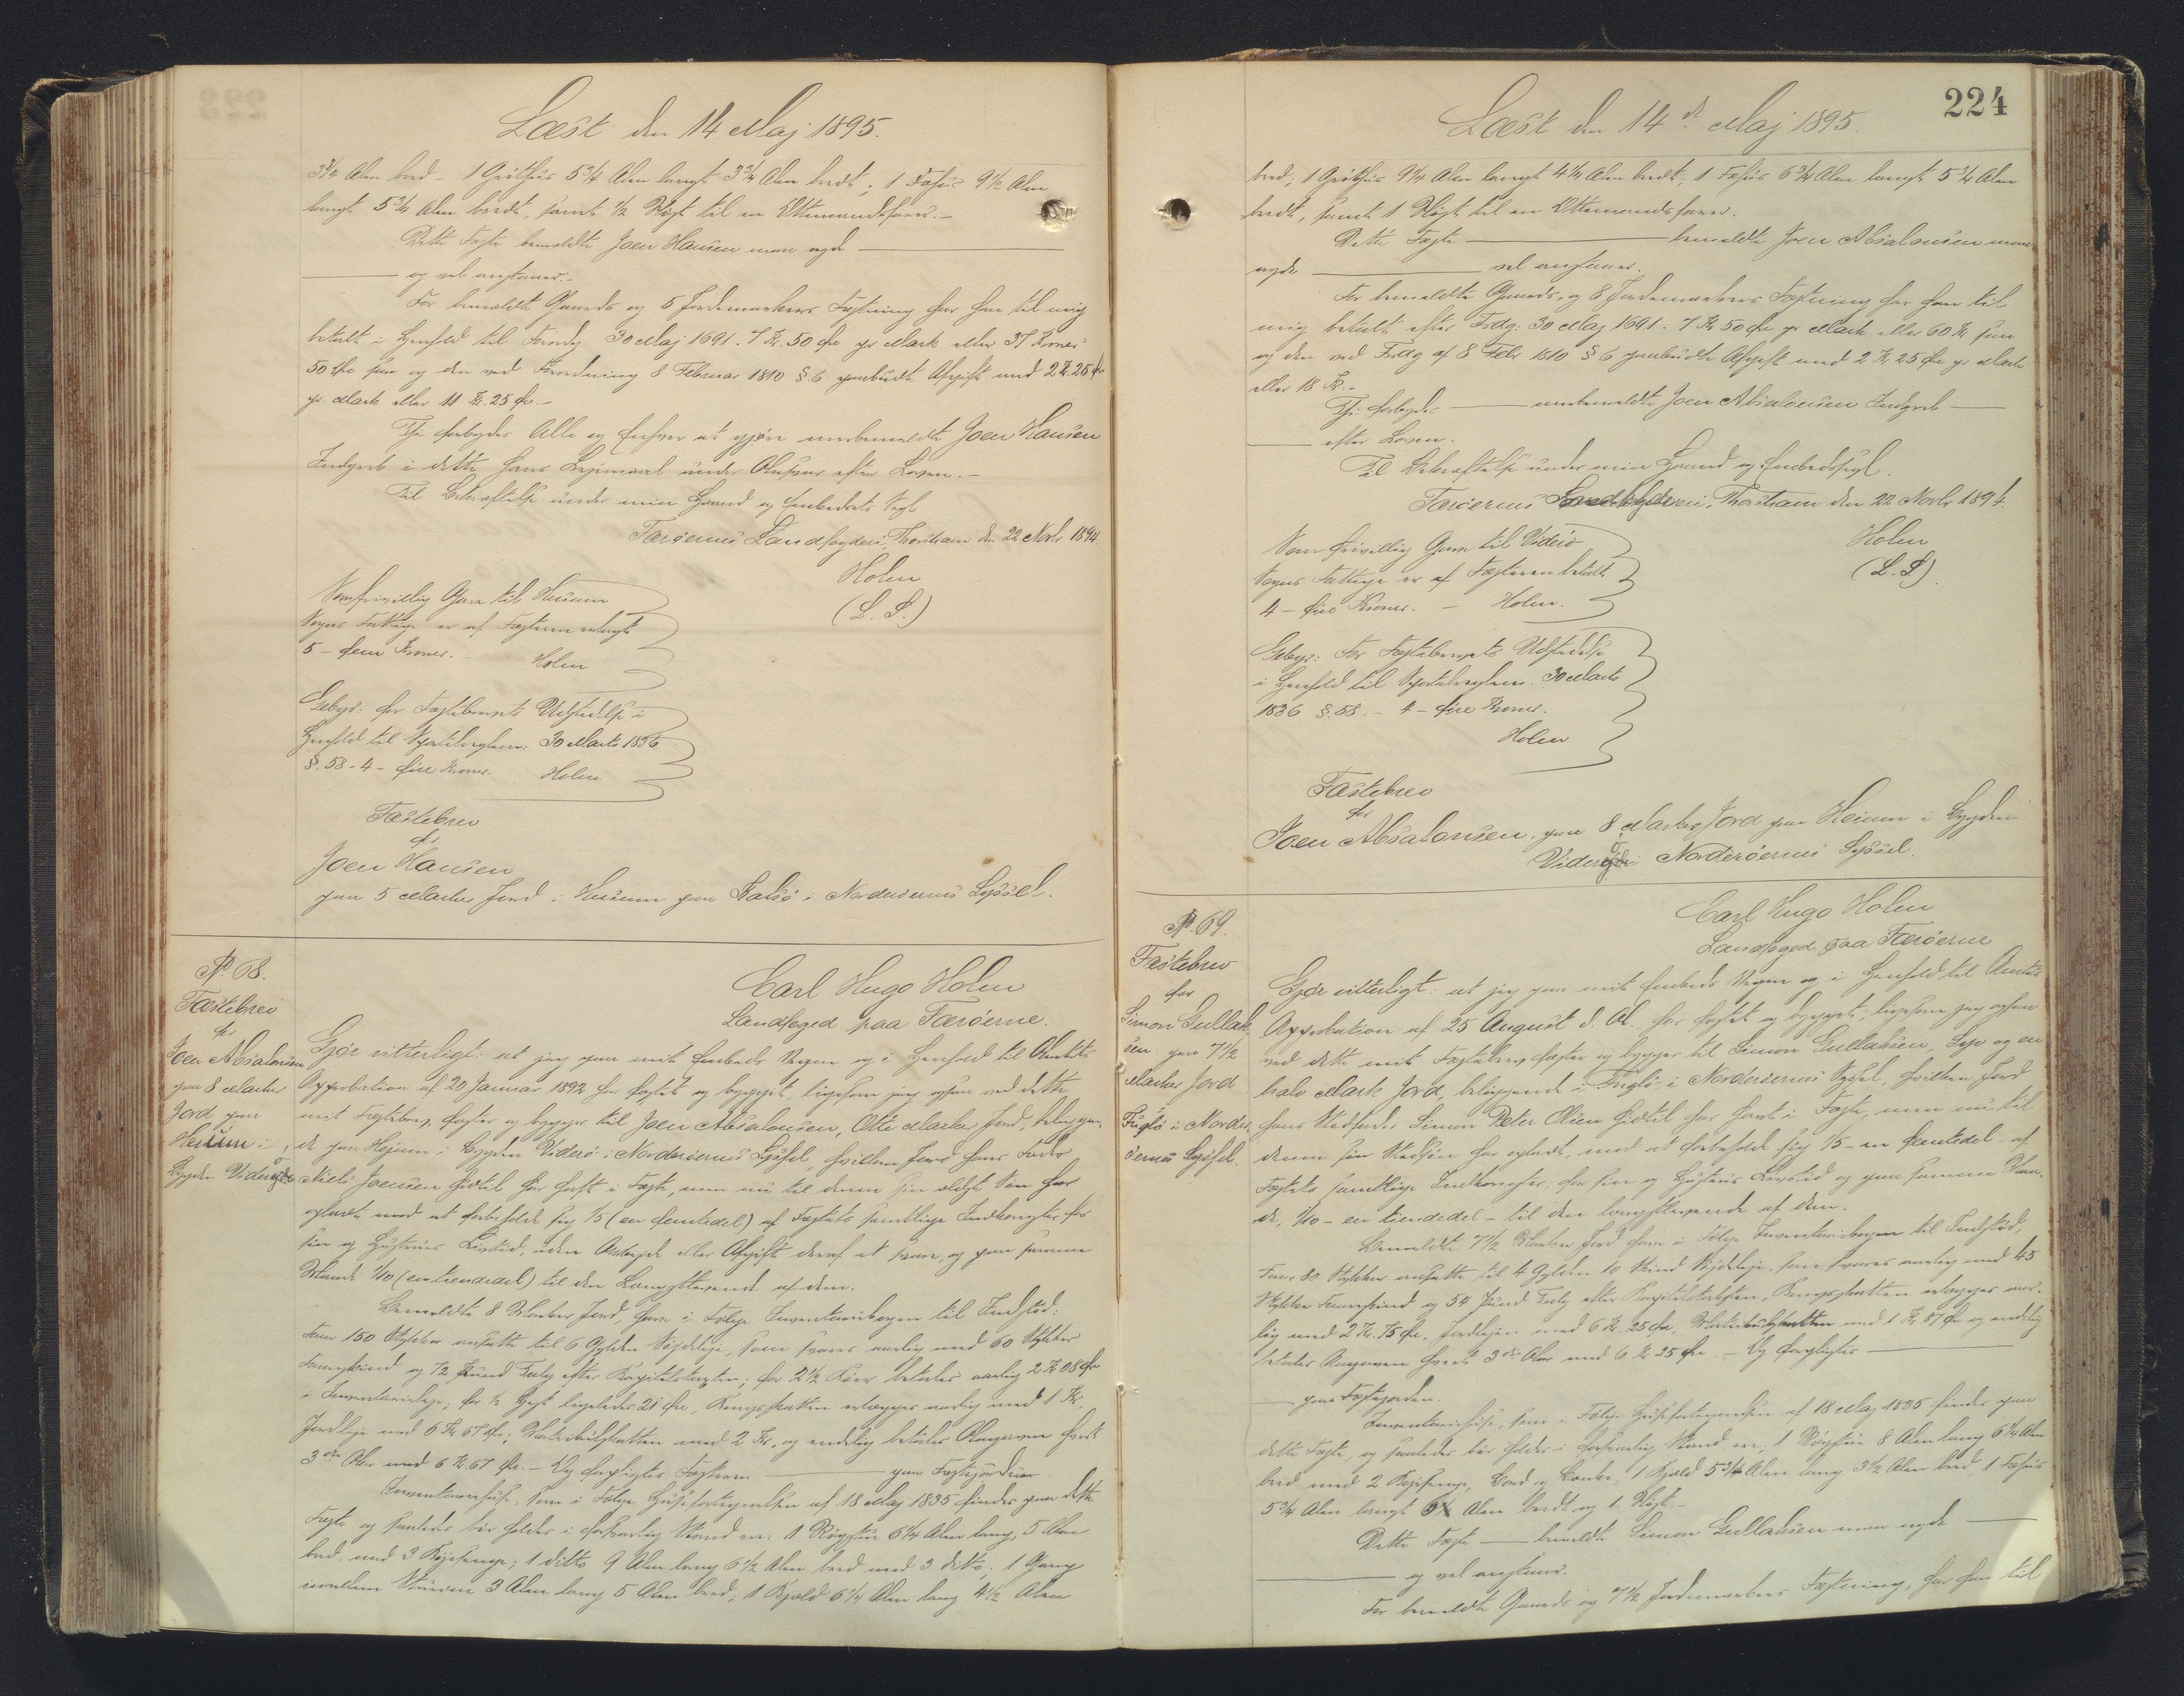 Læst den 14 Maj 1895.
3 3/4 Alen bred - 1 Grölhus 5 3/4 Alen langt 3 3/4 Alen bredt; 1 Fæhus 9 1/2 Alen
langt 5 3/4 Alen bredt, samt 1/2 Kløgt til en Ottemandsfarer.-
Dette Fæste bemeldte Joen Hansen maa nyde
og vel angaaer.-
For bemeldte Gaards og 5 Jordemarkers Fæstning har han til mig
betalt i Henhold til Forordg. 30 Maj 1691. 7 Kr. 50 Øre pr Mark eller 37 Kroner
50 Øre samt og den ved Forordning 8 Februar 1810 § 6 paabudte Afgift med 2 Kr. 25 Ø
pr. Mark eller 11 Kr. 25 Ø.-
Thi forbydes Alle og Enhver at gjøre merbemeldte Joen Hansen
Indgreb i dette hans Lejemaal under Ansvar efter Loven.-
Til Bekræftelse under min Haand og Embedets Segl
Færöernes Landfogderi, Thorshavn den 22 Novbr 1894.
Holen
(L. S.)
Som frivillig Gave til Husum
Sogns Fattige er af Fæsteren erlagt
5 - fem Kroner.
Holen
Gebyr: for Fæstebrevets Udstedelse i
Henhold til Sportelreglem. 30 Marts 1836
§. 58 - 4 - fire Kroner. Holen
Fæstebrev
for
Joen Hansen
paa 5 Marker Jord i Husum paa Kalsö i Norderöernes Syssel.
No. 68.
Fæstebrev
for
Joen Absalonsen
paa 8 Marker
Jord paa
Heium i
Bygden Viderö
Carl Hugo Holen
Landfoged paa Færöerne.
Gjør vitterligt: at jeg paa mit Embeds Vegne og i Henhold til Amtets
Approbation af 20 Januar 1892 har fæstet og bygget, ligesom jeg ogsaa ved dette
mit Fæstebrev fæster og bygger til Joen Absalonsen, Otte Marker Jord, beliggen-
de paa Hejum i Bygden Viderö i Norderöernes Syssel, hvilken Jord hans Fader
Niels Joensen hidtil har havt i Fæste, men nu til denne sin ældste Søn har
opladt mod at forbeholde sig 1/5 (en femtedel) af Fæstets samtlige Indkomster for
sin og Hustrues Livstid, uden Arbejde eller Afgift deraf at svare, og paa samme
Maade 1/10 (en tiendedel) til den Længstlevende af dem.
Bemeldte 8 Marker Jord, have i Følge Inventariebogen til Indstöd:
Faar 150 Stykker ansatte til 6 Gylden Vejdeleje, som svares aarlig med 60 Stykker
Faareskind og 72 Pund Talg efter Kapitelstaxten; for 2 1/2 Køer betales aarlig 2 Kr 08 Øre
i Inventarieleje; for 1/2 Hest ligeledes 21 Øre, Kongsskatten erlægges aarlig med 1 Kr.
Jordleje med 6 Kr 67 Øre; Matrikulskatten med 2 Kr., og endelig betales Aargaven hvert
3die Aar med 6 Kr. 67 Øre. - Og forpligtes Fæsteren paa Fæstejorden.
Inventariehuse, som i Følge Husfortegnelsen af 18 Maj 1835 findes paa dette
Fæste og saaledes bör holdes i forsvarlig Stand ere: 1 Røgstue 6 1/4 Alen lang, 5 Alen
bred, med 3 Køjesenge; 1 ditto 9 Alen lang 6 1/2 Alen bred med 3 ditto; 1 Gang
imellem Stuerne 3 Alen lang 5 Alen bred; 1 Kjæld 6 1/4 Alen lang 4 1/2 Alen
224
Læst den 14de Maj 1895.
bred; 1 Grölhus 9 1/4 Alen langt 4 1/4 Alen bredt; 1 Fæhus 6 3/4 Alen langt 5 3/4 Alen
bredt, samt 1 Kløgt til en Ottemandsfarer.
Dette Fæste bemeldte Joen Absalonsen maa
nyde vel angaaer.
For bemeldte Gaards- og 8 Jordemarkers Fæstning har han til
mig betalt efter Frdg: 30 Maj 1691. 7 Kr 50 Øre pr Mark eller 60 Kr samt
og den ved Frdg af 8 Febr 1810 § 6 paabudte Afgift med 2 Kr. 25 Øre pr Mark
eller 18 Kr.-
Thi forbydes merbemeldte Joen Absalonsen Indgreb
efter Loven.
Til Bekræftelse under min Haand og Embedssegl.
Færöernes Landfogderi, Thorshavn den 22 Novbr 1894.
Holen
(L. S.)
Som frivillig Gave til Viderö
Sogns Fattige er af Fæsteren betalt
4 - fire Kroner. - Holen.
Gebyr: for Fæstebrevets Udstedelse
i Henhold til Sportelreglem. 30 Marts
1836 §. 58. - 4 - fire Kroner.
Holen
Fæstebrev
for
Joen Absalonsen, paa 8 Marker Jord paa Heium i Bygden
Viderö i Norderöernes Syssel.
No. 69.
Fæstebrev
for
Simon Gullak-
sen paa 7 1/2
Marker Jord
Fuglö i Norder-
öernes Syssel.
Carl Hugo Holen
Landfoged paa Færöerne
Gjør vitterligt: at jeg paa mit Embeds Vegne og i Henhold til Amtets
Approbation af 25 August d. A. har fæstet og bygget, ligesom jeg ogsaa
ved dette mit Fæstebrev fæster og bygger til Simon Gullaksen, Syv og en
halv Mark Jord, beliggende i Fuglö i Norderöernes Syssel, hvilken Jord
hans Stedfader Simon Peter Olsen hidtil har havt i Fæste, men nu til
denne sin Stedsön har opladt, mod at forbeholde sig 1/5 - en femtedel - af
Fæstets samtlige Indkomster, for sin og Hustrues Livstid og paa samme Maa-
de, 1/10 - en tiendedel - til den længstlevende af dem.
Bemeldte 7 1/2 Marker Jord have i Følge Inventariebogen til Indstöd,
Faar 80 Stykker ansatte til 4 Gylden 10 Skind Vejdeleje, som svares aarlig med 45
Stykker Faareskind og 54 Pund Talg efter Kapitelstaksten, Kongsskatten erlægges aar-
lig med 2 Kr. 75 Øre, Jordlejen med 6 Kr. 25 Øre, Matrikulskatten med 1 Kr 87 Øre og endelig
betales Aargaven hvert 3die Aar med 6 Kr 25 Øre. - Og forpligtes
paa Fæstejorden.
Inventariehuse, som i Følge Husfortegnelsen af 18 Maj 1835 findes paa
dette Fæste, og saaledes bör holdes i forsvarlig Stand ere; 1 Røgstue 8 Alen lang 6 1/4 Alen
bred med 2 Køjesenge, Bord og Bænke, 1 Kjæld 5 3/4 Alen lang 3 1/2 Alen bred, 1 Fæhus
5 3/4 Alen langt Alen bredt og 1 Kløgt.-
Dette Fæste bemeldte Simon Gullaksen maa nyde
og vel angaaer.
For bemeldte Gaards og 7 1/2 Jordemarkers Fæstning, har han til